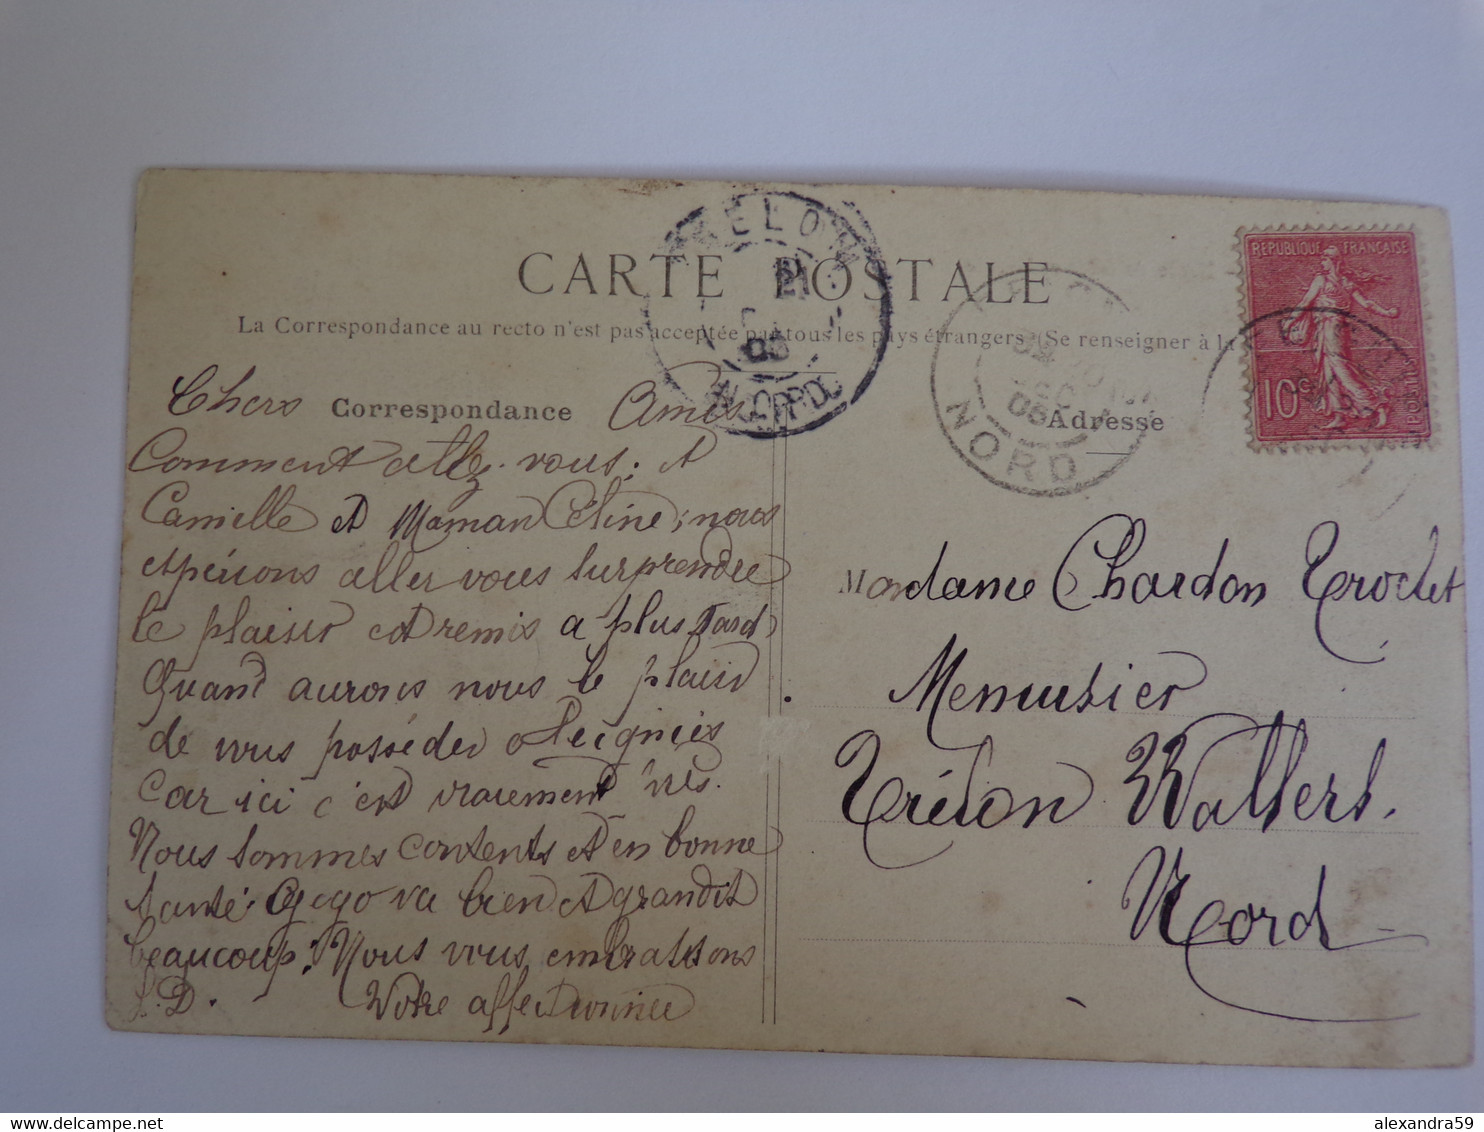 TRELON
21
06
NORD
CARTE POSTALE
La Correspondance au recto n'est pas acceptée par tous les pays étrangers (Se renseigner à la
REPUBLIQUE FRANÇAISE
10c
06
NORD
Chers Amis
Correspondance
Comment allez-vous; et
Camille et Maman Céline; nous
espérions aller vous surprendre
le plaisir et remis a plus tard
Quand aurons nous le plaisir
de vous posséder
car ici c'est vraiement
Nous sommes contents et en bonne
santé. Gogo va bien et grandit
beaucoup; Nous vous embrassons
Votre affectionnée
D.
Adresse
Madame Chardon Trochet
Menuisier
Trélon Wallers.
Nord
alexandra59